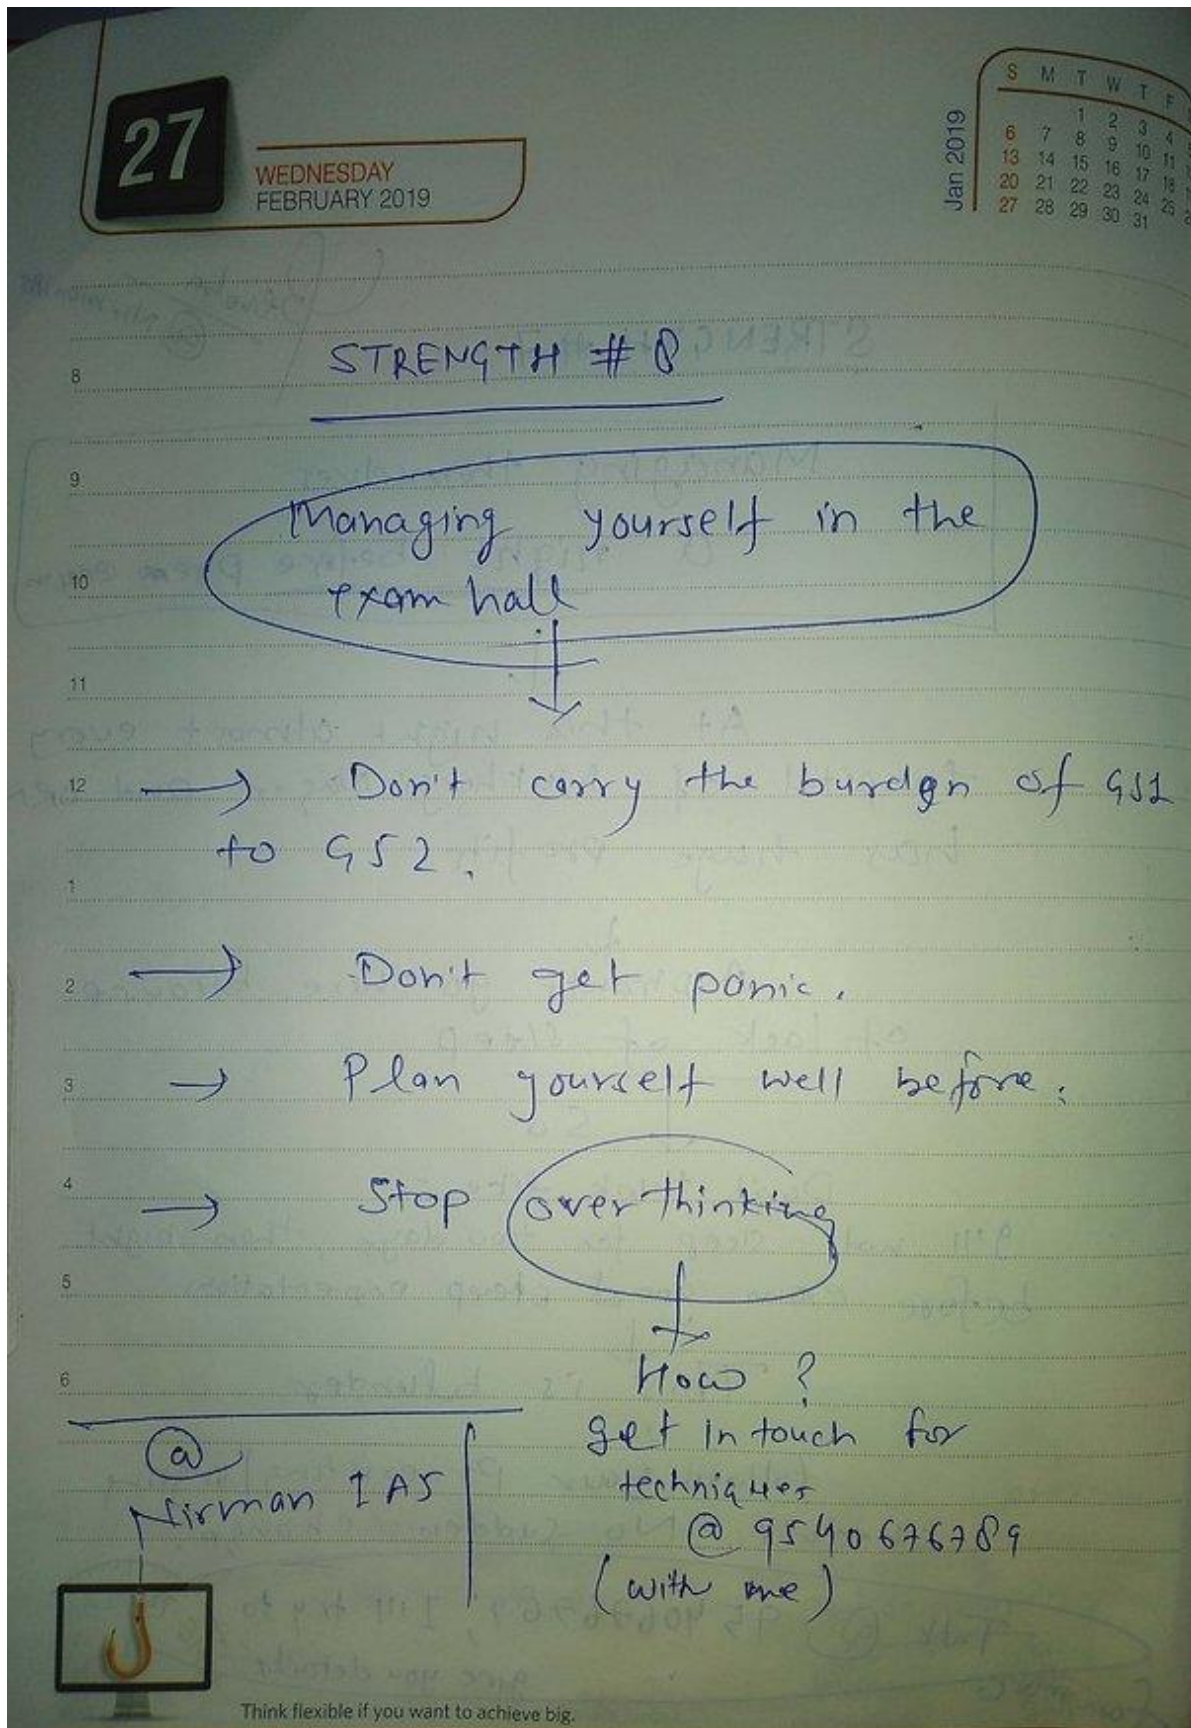 27
WEDNESDAY
FEBRUARY 2019
Jan 2019
S M T W T F
1 2 3 4
6 7 8 9 10 11
13 14 15 16 17 18
20 21 22 23 24 25
27 28 29 30 31
8
STRENGTH # 8
9
Managing yourself in the
10
exam hall
11
12
→ Don't carry the burden of GS1
to GS2.
1
2
→ Don't get panic.
3
→ Plan yourself well before.
4
→ Stop overthinking
5
How ?
6
get in touch for
techniques
@ 9540676789
(with me)
@
Nirman IAS
Think flexible if you want to achieve big.